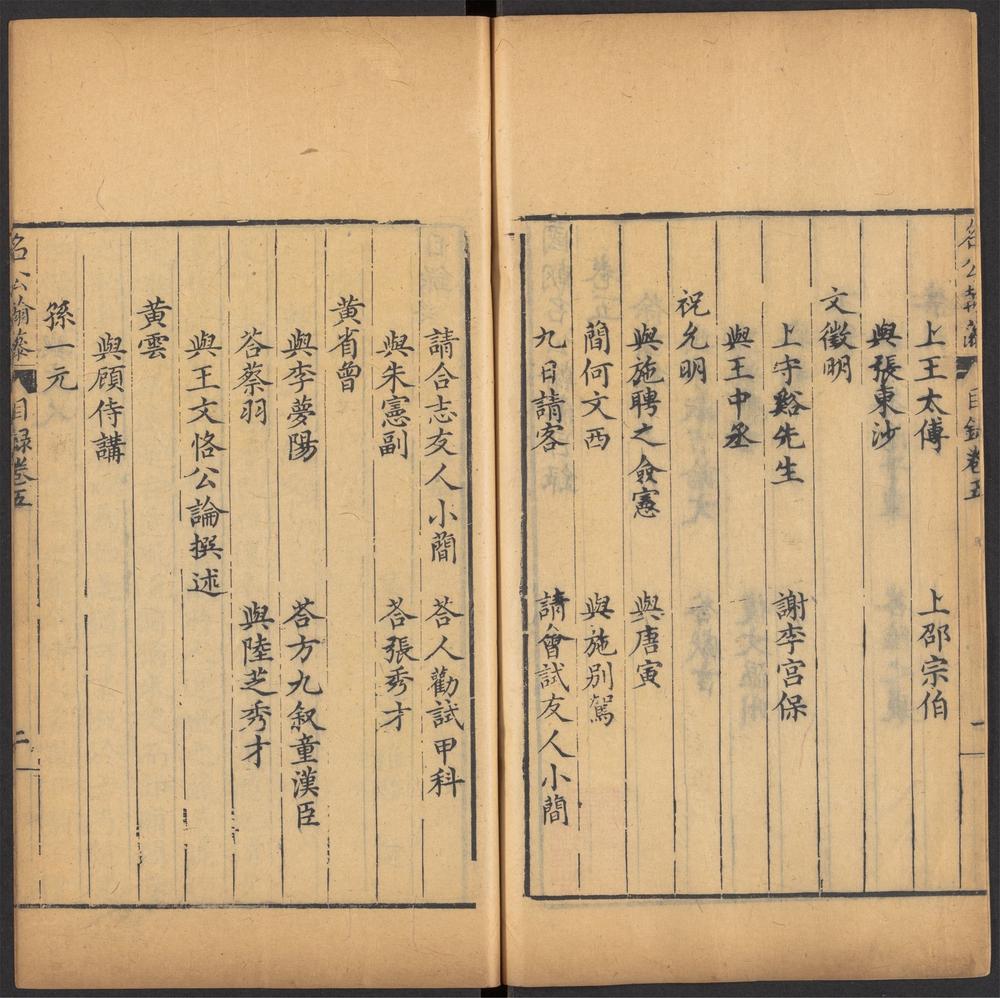 名公翰藻 目錄卷五 一
上王太傅 上邵宗伯
與張東沙
文徵明
上守谿先生 謝李宮保
與王中丞
祝允明
與施聘之僉憲 與唐寅
簡何文西 與施別駕
九日請客 請會試友人小蕳
請合志友人小蕳 荅人勸試甲科
與朱憲副 荅張秀才
黃省曾
與李夢陽 荅方九叙童漢臣
荅蔡羽 與陸芝秀才
與王文恪公論撰述
黃雲
與顧侍講
孫一元
名公翰藻 目録卷五 二